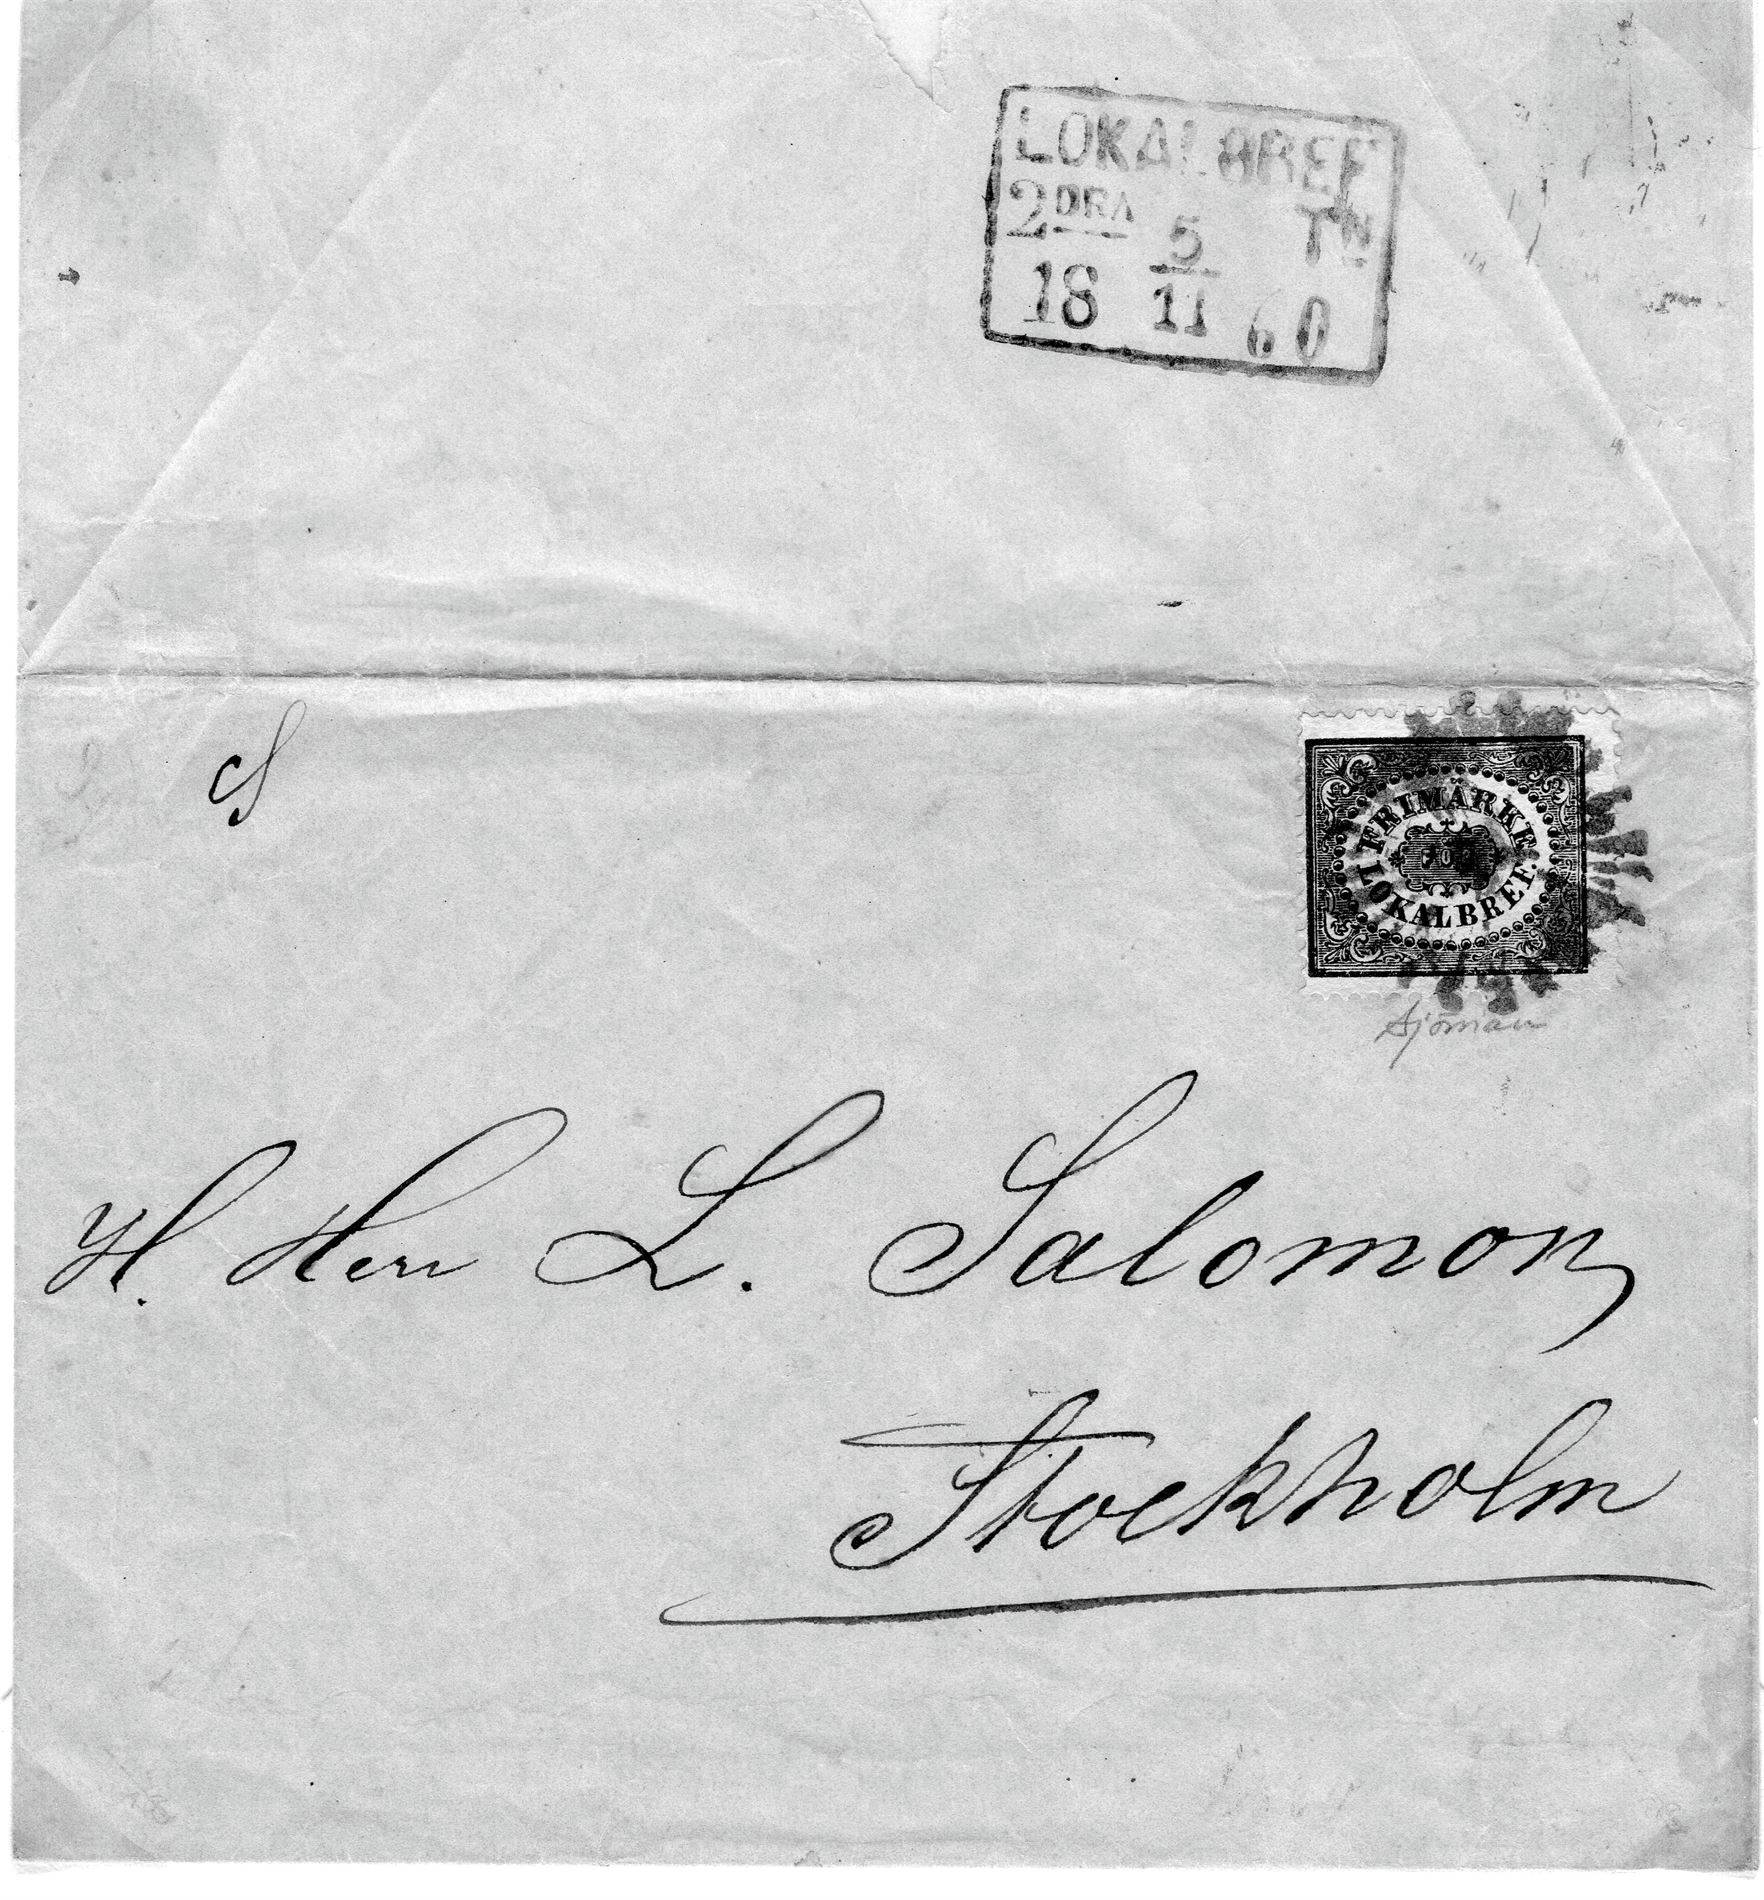 LOKALBREF
2DRA 5 TN
18 11 60
S
FRIMÄRKE
FÖR
LOKALBREF.
Sjöman
H. Herr L. Salomon
Stockholm